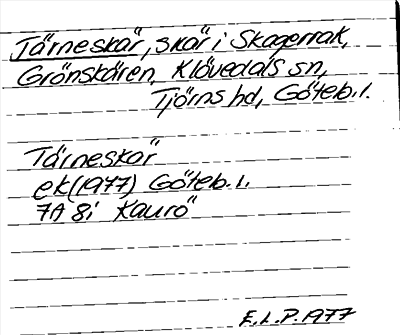 Tärneskär, skär i Skagerrak,
Grönskären, Klövedals sn,
Tjörns hd, Göteb. l.
Tärneskär
ek (1977) Göteb. l.
7A 8i Kaurö
E.L.P. 1977